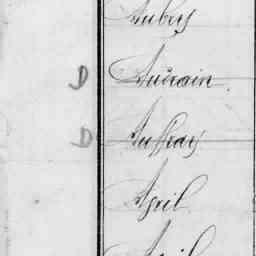 Aubry
D Audrain
D Auffray
Avril
Avril